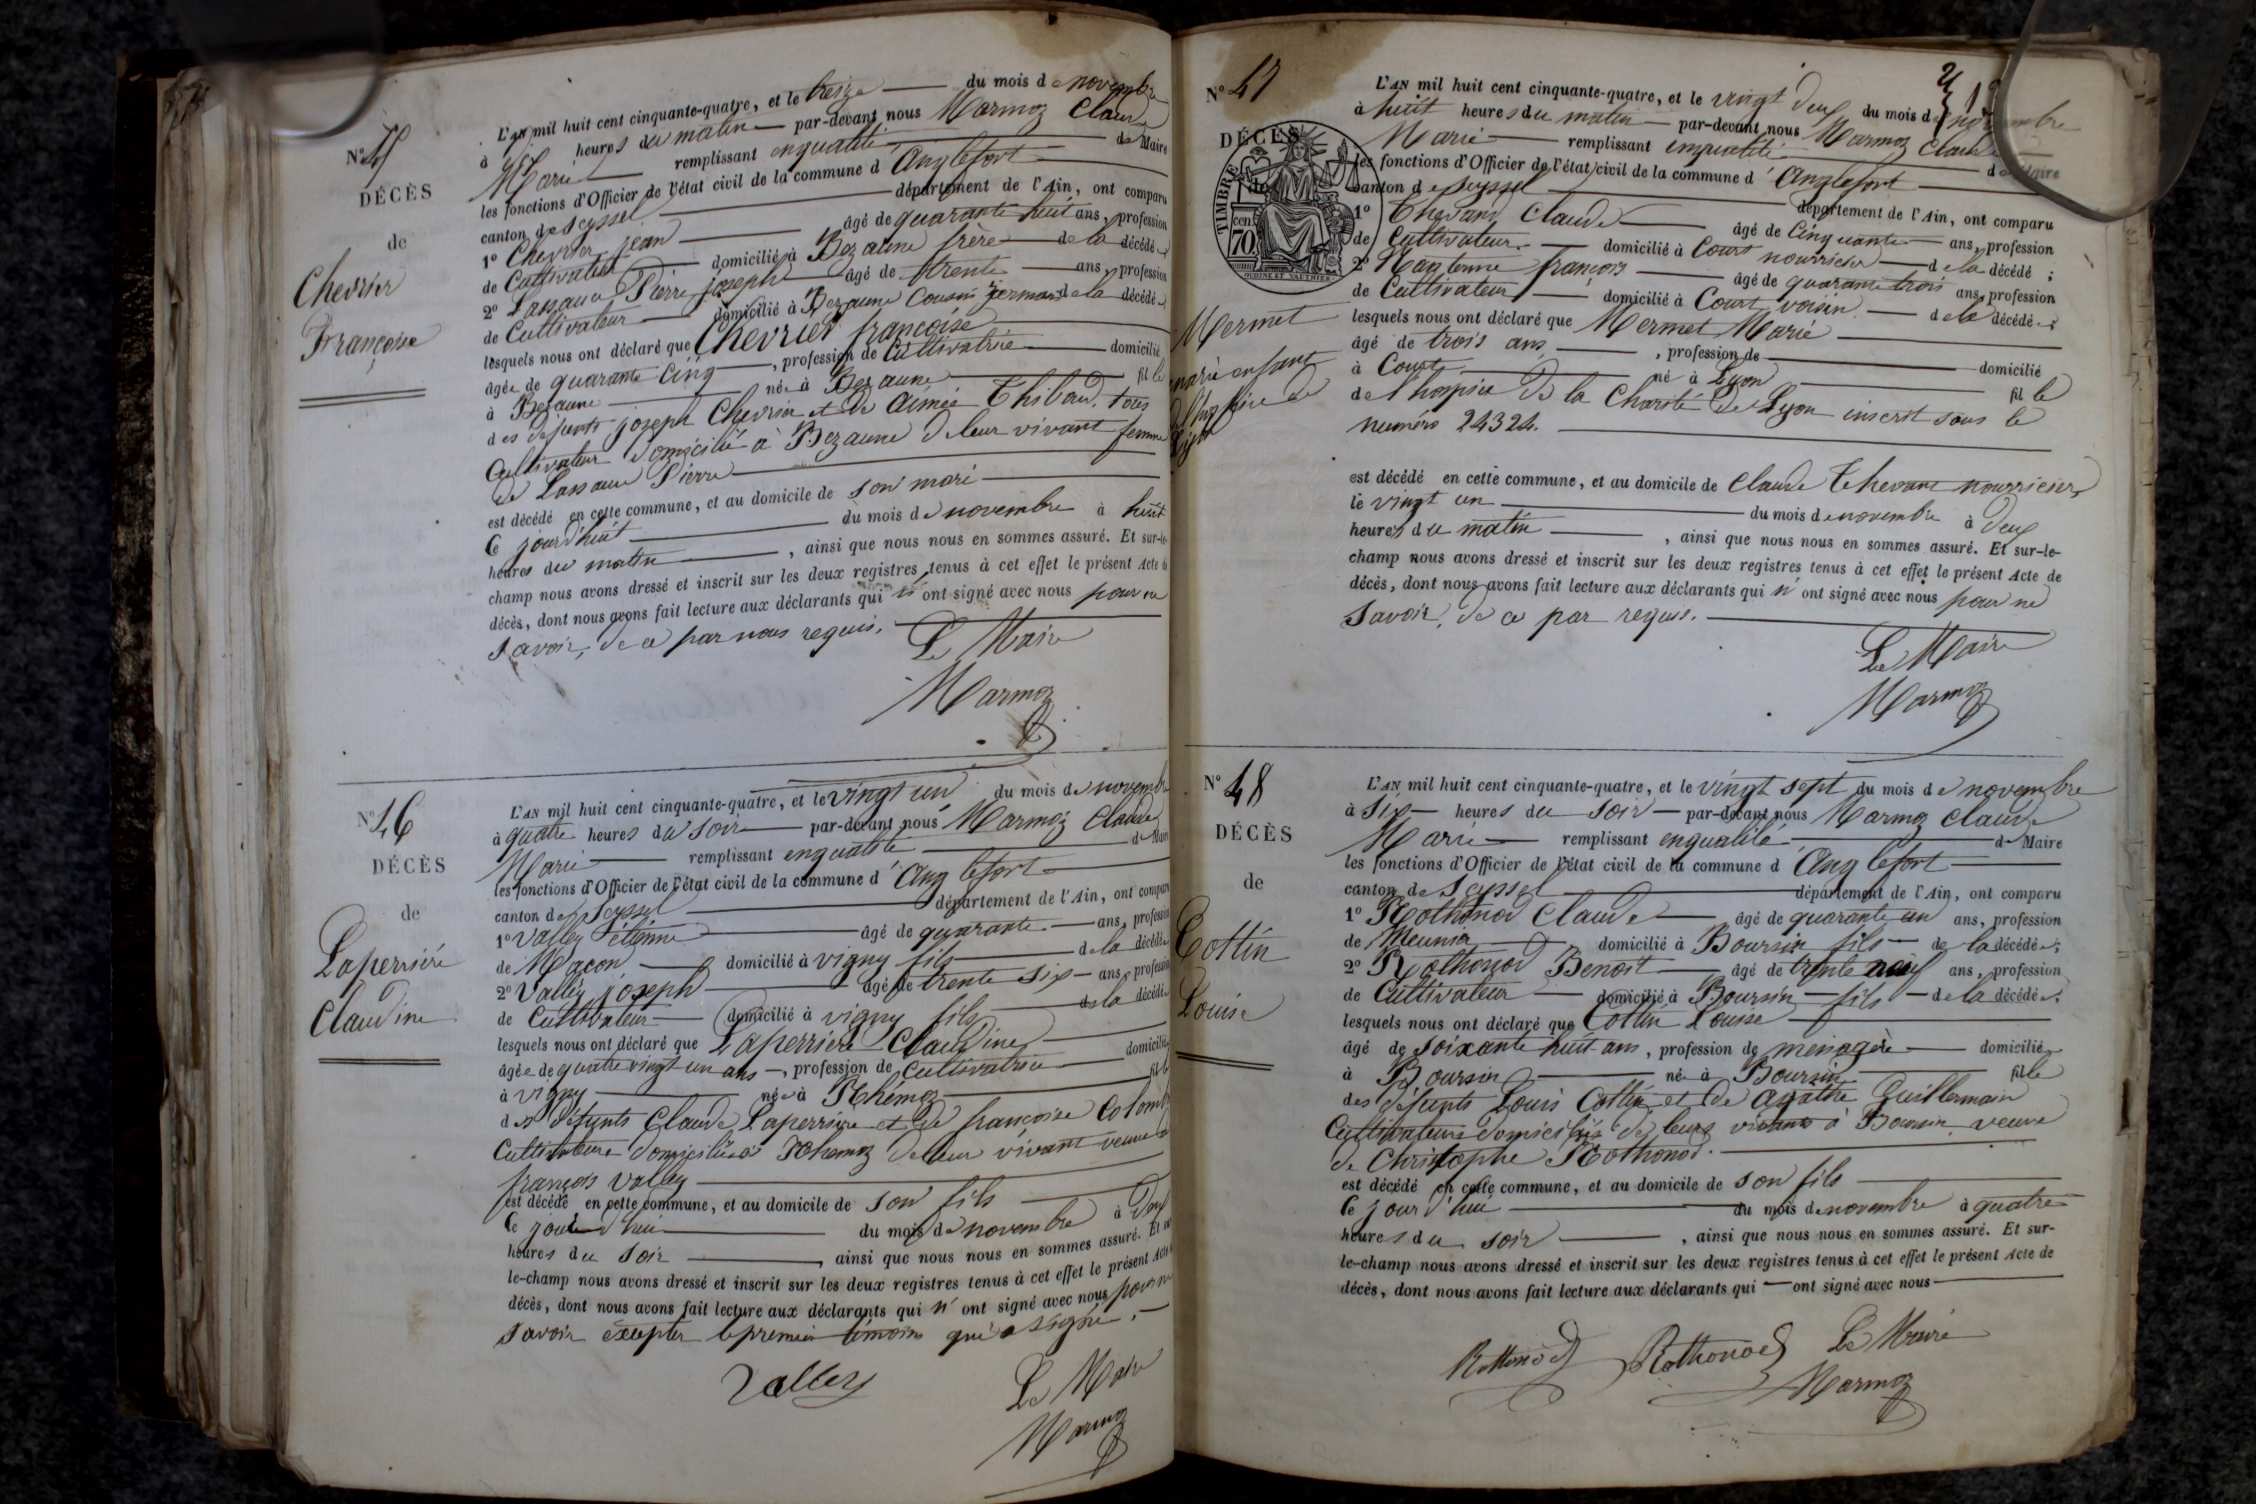 N° 45
DÉCÈS
de
Chevrier
Françoise
L'AN mil huit cent cinquante-quatre, et le treize du mois de novembre
à heures du matin par-devant nous Marmoz Claude
Marie remplissant enqualité de Maire
les fonctions d'Officier de l'état civil de la commune d'Anglefort
canton de Seyssel département de l'Ain, ont comparu
1° Chevrier jean âgé de quarante huit ans, profession
de Cultivateur domicilié à Bezaune frère de la décédée
2° Lassaue Pierre joseph âgé de trente ans, profession
de Cultivateur domicilié à Bezaune Cousin germain de la décédée
lesquels nous ont déclaré que Chevrier françoise
âgée de quarante cinq , profession de Cultivatrice domicilié
à Bezaune née à Bezaune fille
des defunts joseph Chevrier et de aimée Thibaud,
Cultivateur domicilié à Bezaune de leur vivant femme
de Lassaue Pierre
est décédé en cette commune, et au domicile de son mari
Ce jourd'huit du mois de novembre à huit
heures du matin , ainsi que nous nous en sommes assuré. Et sur-le-
champ nous avons dressé et inscrit sur les deux registres tenus à cet effet le présent Acte de
décès, dont nous avons fait lecture aux déclarants qui n'ont signé avec nous pour ne
savoir, de ce par nous requis.
Le Maire
Marmoz
N° 46
DÉCÈS
de
Laperriére
Claudine
L'AN mil huit cent cinquante-quatre, et le vingt un du mois de novembre
à quatre heures du soir par-devant nous Marmoz Claude
Marie remplissant enqualité de Maire
les fonctions d'Officier de l'état civil de la commune d'Anglefort
canton de Seyssel département de l'Ain, ont comparu
1° Valley étienne âgé de quarante ans, profession
de Maçon domicilié à vigny fils de la décédée
2° Valley joseph âgé de trente six ans, profession
de Cultivateur domicilié à vigny fils de la décédée
lesquels nous ont déclaré que Laperriére Claudine
âgée de quatre vingt un ans , profession de Cultivatrice domicilié
à vigny née à Rhémoz fille
des défunts Claude Laperriere et de françoise Colomb
Cultivateurs domiciliés à Rhemoz de leur vivant veuve de
françois Valley
est décédé en cette commune, et au domicile de son fils
Ce jourd'hui du mois de novembre à deux
heures du soir , ainsi que nous nous en sommes assuré. Et sur-
le-champ nous avons dressé et inscrit sur les deux registres tenus à cet effet le présent Acte de
décès, dont nous avons fait lecture aux déclarants qui n'ont signé avec nous pour ne
savoir excepter le premier témoin qui a signé.
Valley
Le Maire
Marmoz
N° 47
DÉCÈS
TIMBRE
cen 70
OUDINE ET VAUTHIER
Mermet
marie enfant
de l'hospice de
Lyon
L'AN mil huit cent cinquante-quatre, et le vingt deux du mois de novembre
à huit heures du matin par-devant nous Marmoz Claude
Marie remplissant enqualité de Maire
les fonctions d'Officier de l'état civil de la commune d'Anglefort
canton de Seyssel département de l'Ain, ont comparu
1° Thevant Claude âgé de Cinquante ans, profession
de Cultivateur domicilié à Court nourricier de la décédé ;
2° Nantenne françois âgé de quarante trois ans, profession
de Cultivateur domicilié à Court voisin de la décédée
lesquels nous ont déclaré que Mermet Marie
âgé de trois ans , profession de domicilié
à Court né à Lyon fille
de l'hospice de la Charité de Lyon inscrit sous le
numéro 24324.
est décédé en cette commune, et au domicile de Claude Thevant nourricier
le vingt un du mois de novembre à deux
heures du matin , ainsi que nous nous en sommes assuré. Et sur-le-
champ nous avons dressé et inscrit sur les deux registres tenus à cet effet le présent Acte de
décès, dont nous avons fait lecture aux déclarants qui n'ont signé avec nous pour ne
savoir, de ce par requis.
Le Maire
Marmoz
N° 48
DÉCÈS
de
Cottin
Louise
L'AN mil huit cent cinquante-quatre, et le vingt sept du mois de novembre
à six heures du soir par-devant nous Marmoz Claude
Marie remplissant enqualité de Maire
les fonctions d'Officier de l'état civil de la commune d'Anglefort
canton de Seyssel département de l'Ain, ont comparu
1° Rothonod Claude âgé de quarante un ans, profession
de Meunier domicilié à Boursin fils de la décédée ;
2° Rothonod Benoit âgé de trente neuf ans, profession
de Cultivateur domicilié à Boursin fils de la décédée.
lesquels nous ont déclaré que Cottin Louise
âgé de soixante huit ans , profession de menagère domiciliée
à Boursin née à Boursin fille
des défunts Louis Cottin et de agathe Guillermain
Cultivateurs domiciliés de leurs vivants à Boursin veuve
de Christophe Rothonod.
est décédé en cette commune, et au domicile de son fils
Ce jour d'hui du mois de novembre à quatre
heures du soir , ainsi que nous nous en sommes assuré. Et sur-
le-champ nous avons dressé et inscrit sur les deux registres tenus à cet effet le présent Acte de
décès, dont nous avons fait lecture aux déclarants qui ont signé avec nous
Rothonod Rothonod Le Maire
Marmoz